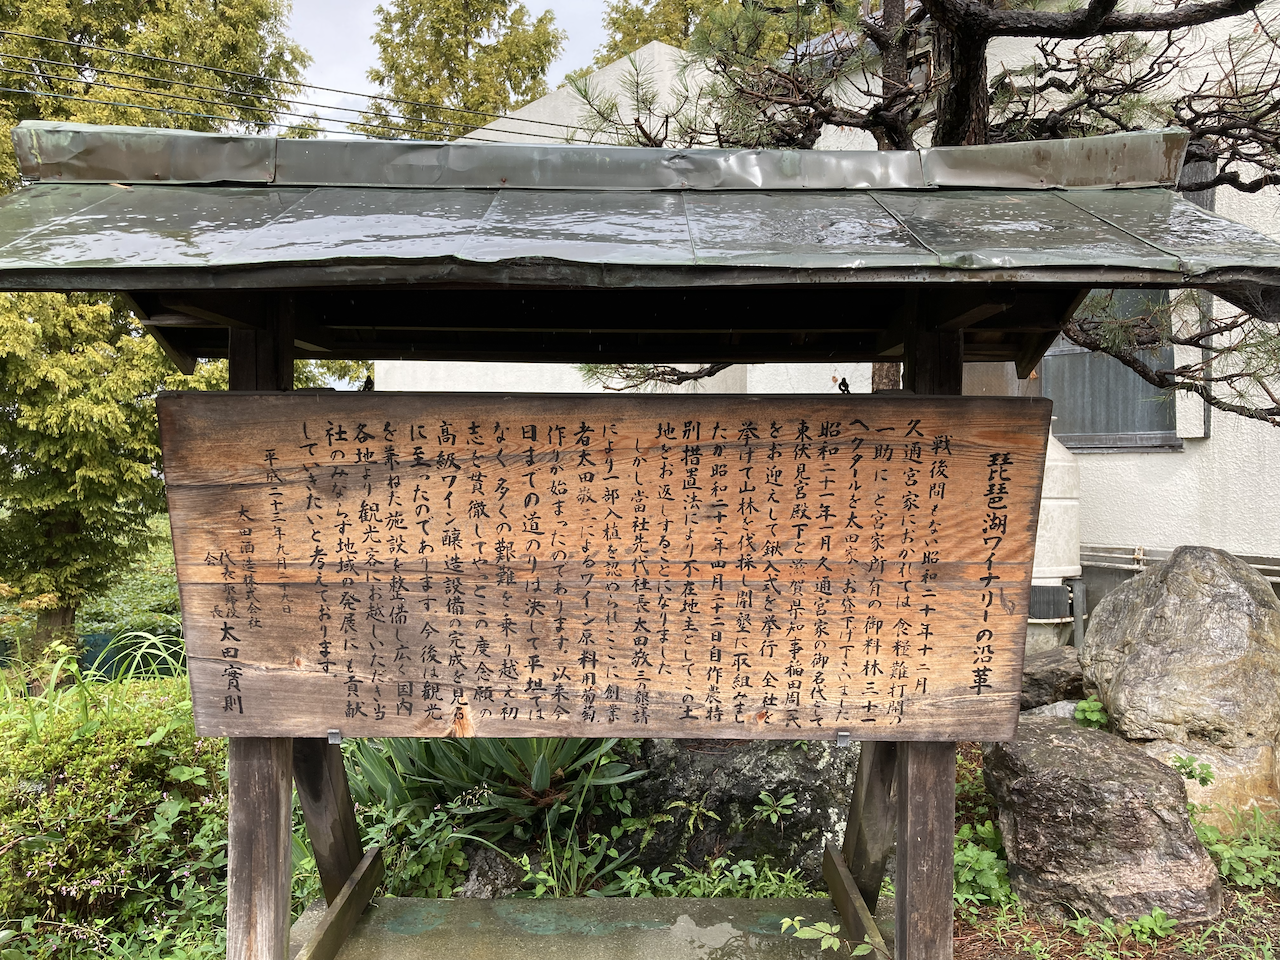 琵琶湖ワイナリーの沿革
戦後間もない昭和二十年十二月
久邇宮家におかれては食糧難打開の
一助にと宮家所有の御料林三十一
ヘクタールを太田家へお分下げ下さいました
昭和二十一年一月久邇宮家の御名代として
東伏見宮殿下と滋賀県知事稲田周一氏
をお迎えして鍬入式を挙行 全社を
挙げて山林を伐採し開墾に取組みまし
たが昭和二十一年四月二十二日自作農特
別措置法により不在地主として の土
地をお返しすることになりました
しかし当社先代社長太田敬三の懇請
により一部入植を認められ ここに創業
者太田敬三によるワイン原料用葡萄
作りが始まったのであります。以来今
日までの道のりは決して平坦では
なく 多くの艱難を乗り越え初
志を貫徹してやっとこの度念願の
高級ワイン醸造設備の完成を見る
に至ったのであります 今後は観光
を兼ねた施設を整備し広く国内
各地より観光客にお越しいただき当
社のみならず地域の発展にも貢献
していきたいと考えております。
平成二十三年九月二十九日
太田酒造株式会社
代表取締役
会長
太田實則